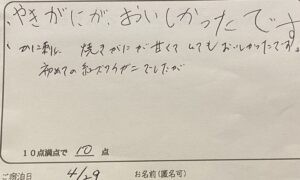 やきがにが、おいしかったです
かに刺し、焼きがにが甘くてとてもおいしかったです。
初めての紅ズワイガニでしたが
10点満点で 10 点
ご宿泊日 4/29 お名前(匿名可)